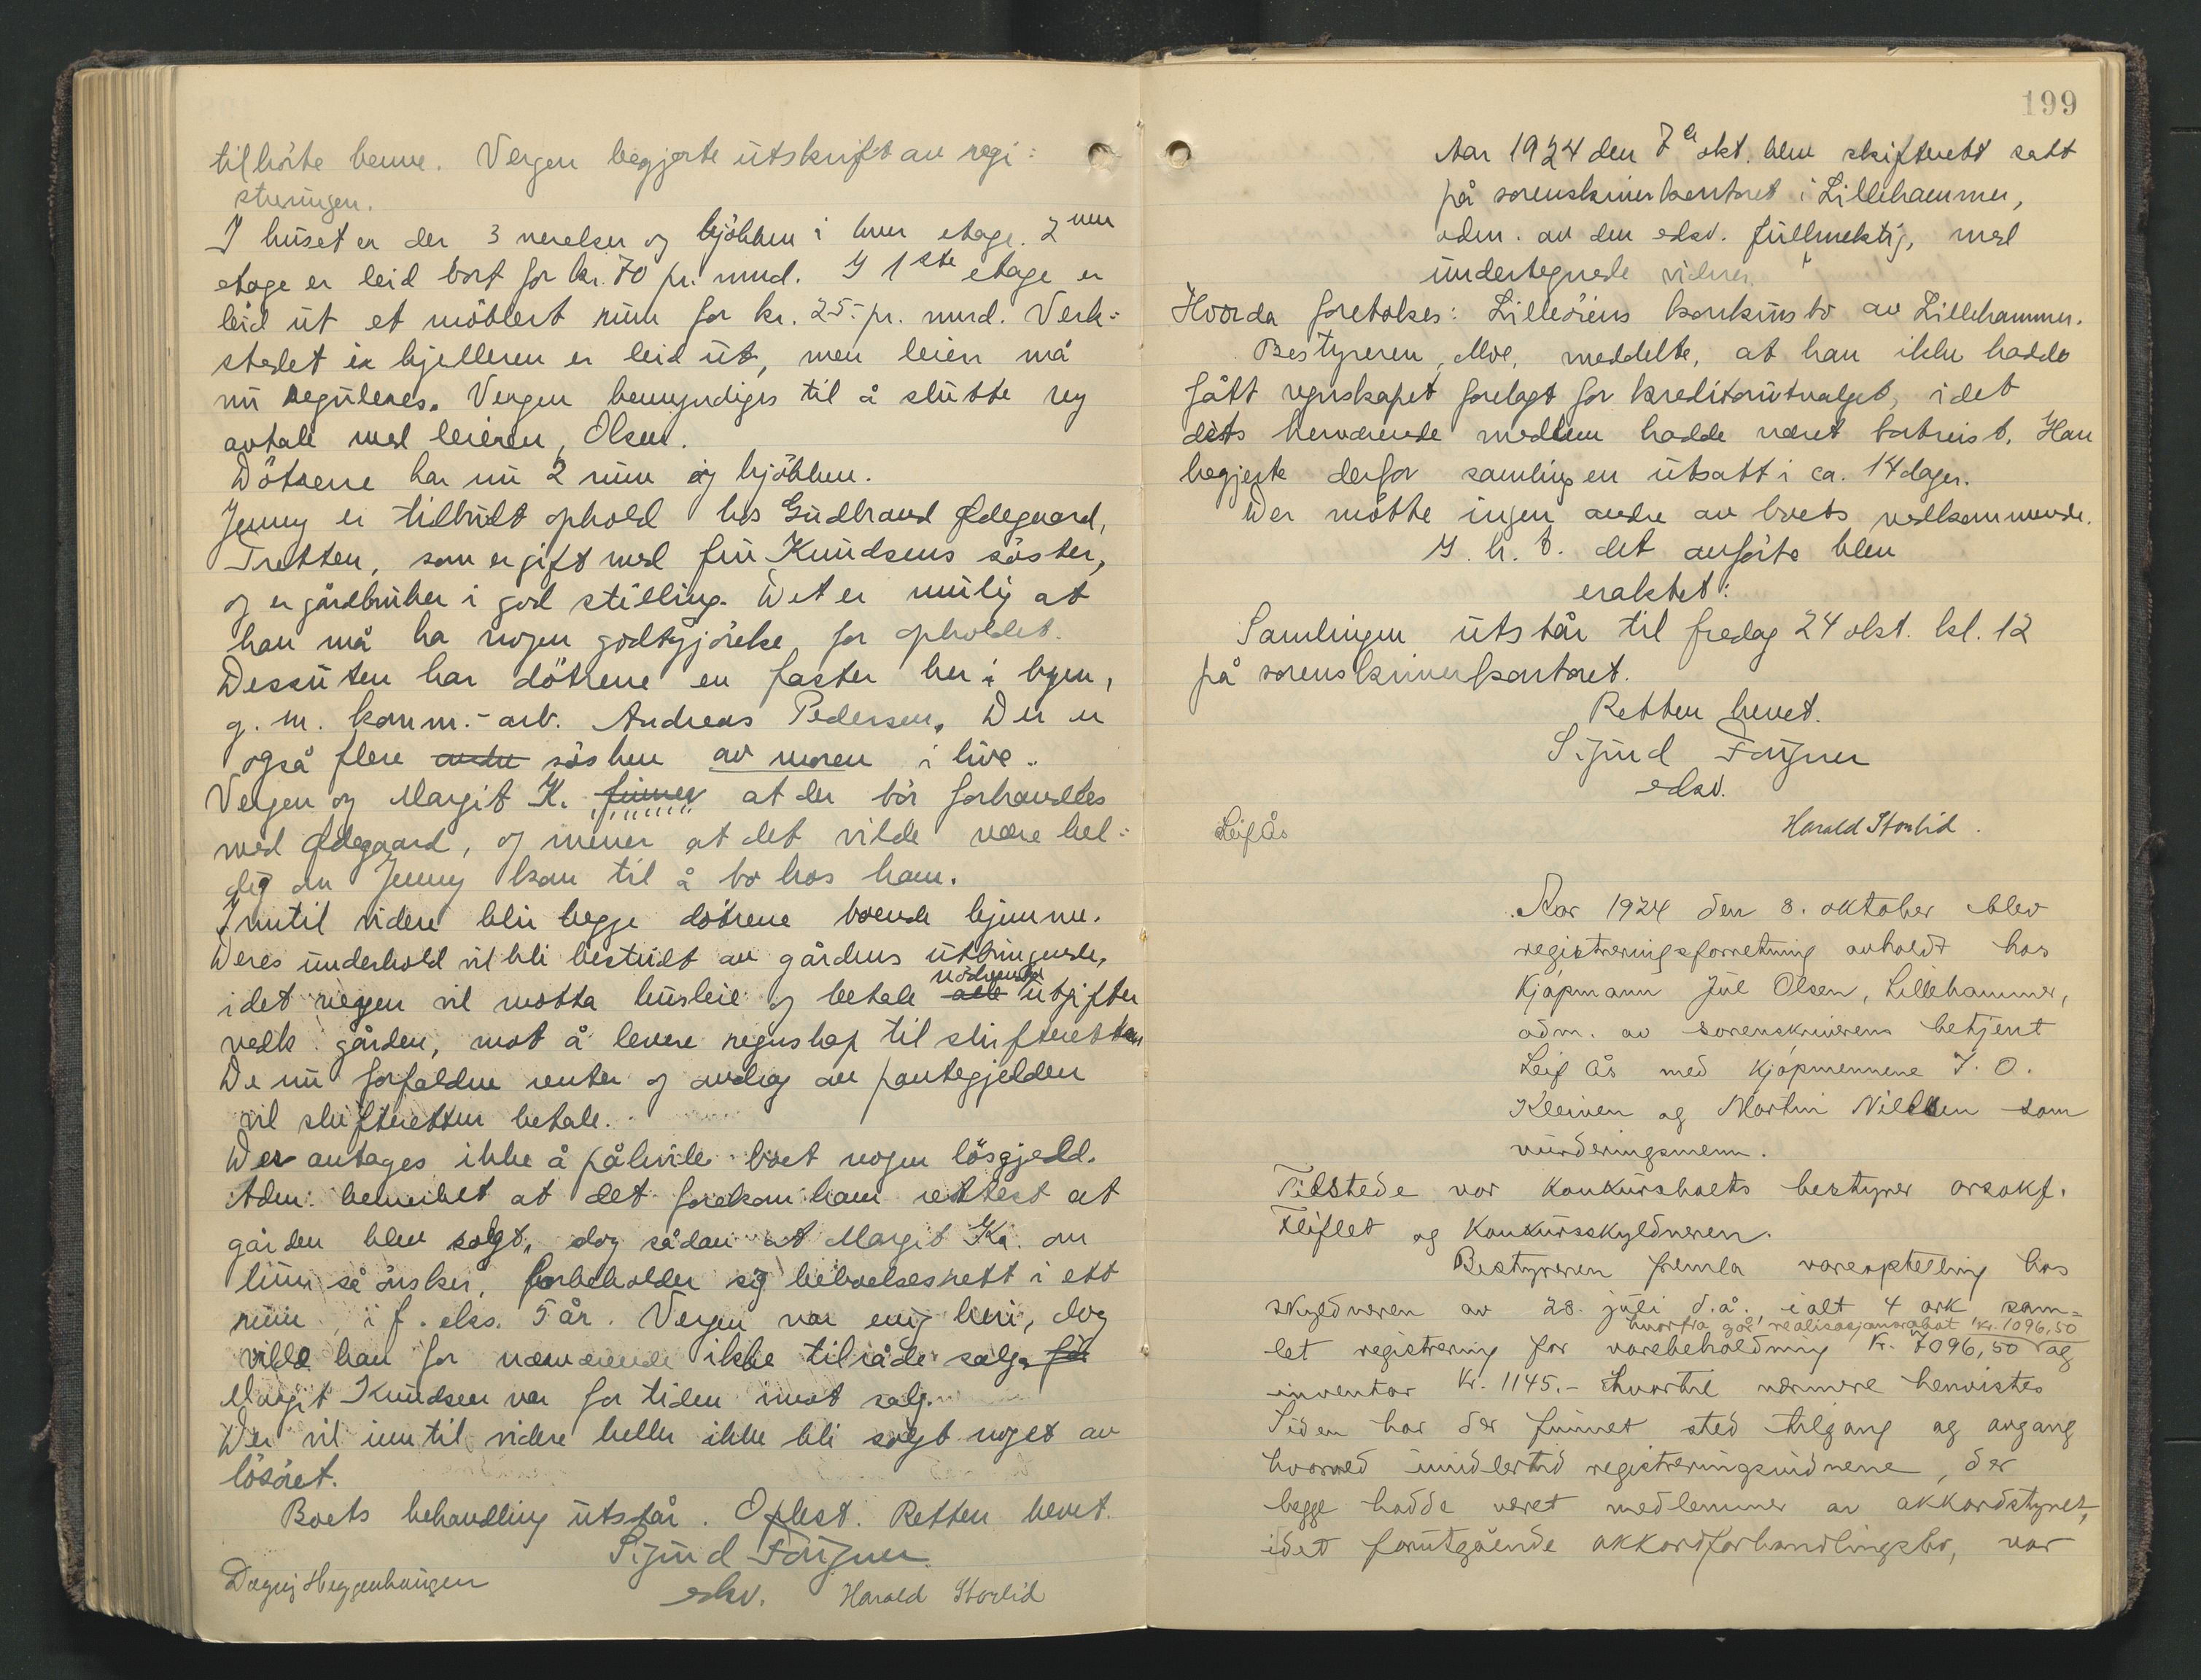 tilhörte henne. Vergen begjærte utskrift av regi-
streringen.
I huset er der 3 værelser og kjökken i hver etage. 2nen
etage er leid bort for kr. 70 pr. mnd. I 1ste etage er
leid ut et möblert rum for kr. 25.- pr. mnd. Verk-
stedet i kjelleren er leid ut, men leien må
nu reguleres. Vergen bemyndiges til å slutte ny
avtale med leieren, Olsen.
Döttrene har nu 2 rum og kjökken.
Jenny er tilbudt ophold hos Gudbrand Ødegaard,
Tretten, som er gift med fru Knudsens söster,
og er gårdbruker i god stilling. Det er mulig at
han må ha nogen godtgjörelse for opholdet.
Dessuten har döttrene en faster her i byen,
g. m. komm.-arb. Andreas Pedersen. Der er
også flere andre sösken av moren i live.
Vergen og Margit K. finner at der bör forhandles
med Ødegaard, og mener at det vilde være hel-
dig om Jenny kom til å bo hos ham.
Inntil videre blir begge döttrene boende hjemme.
Deres underhold vil bli bestridt av gårdens utbringende,
idet vergen vil motta husleie og betale alle nödvendige utgifter
vedk. gården, mot å levere regnskap til skifteretten
De nu forfaldne renter og avdrag av pantegjelden
vil skifteretten betale.
Der antages ikke å påhvile boet nogen lösgjeld.
Adm. bemerket at det forekom ham rettest at
gården blev solgt, dog sådan at Margit K. om
hun så önsker, forbeholder sig beboelsesrett i ett
rum, i f. eks. 5 år. Vergen var enig heri, dog
vilde han for nærværende ikke tilråde salg. for
Margit Knudsen var for tiden imot salg.
Der vil inntil videre heller ikke bli solgt noget av
lösöret.
Boets behandling utstår. Oplest. Retten hevet.
Sigurd Fougner
edsv. Harald Storlid
Dagny Heggenhaugen
199
Aar 1924 den 7de okt. blev skifterett satt
på sorenskriverkontoret i Lillehammer,
adm. av den edsv. fullmektig, med
undertegnede vidner.
Hvorda foretokes: Lilleöiens konkursbo av Lillehammer.
Bestyreren, Moe, meddelte, at han ikke hadde
fått regnskapet forelagt for kreditorutvalget, idet
dets herværende medlem hadde været bortreist. Han
begjærte derfor samlingen utsatt i ca. 14 dager.
Der mötte ingen andre av boets vedkommende.
I. h. t. det anförte blev
eraktet:
Samlingen utstår til fredag 24 okt. kl. 12
på sorenskriverkontoret.
Retten hevet.
Sigurd Fougner
edsv.
Leif Ås Harald Storlid.
Aar 1924 den 8. oktober blev
registreringsforretning avholdt hos
Kjöpmann Jul Olsen, Lillehammer,
adm. av sorenskriverens betjent
Leif Ås med kjöpmennene J. O.
Kleiven og Martin Nilsen som
vurderingsmenn.
Tilstede var konkursboets bestyrer orsakf.
Fliflet og konkursskyldneren.
Bestyreren fremla vareoptelling hos
skyldneren av 28. juli d.å. ialt 4 ark, sam-
hvorfra går realisasjonsrabat kr. 1096,50
let registrering for varebeholdning Kr. 7096,50 og
inventar Kr. 1145.- hvortil nærmere henvistes
Siden har der funnet sted tilgang og avgang
hvorved imidlertid registreringsvidnene, der
begge hadde været medlemmer av akkordstyret,
idet forutgående akkordforhandlingsbo, var